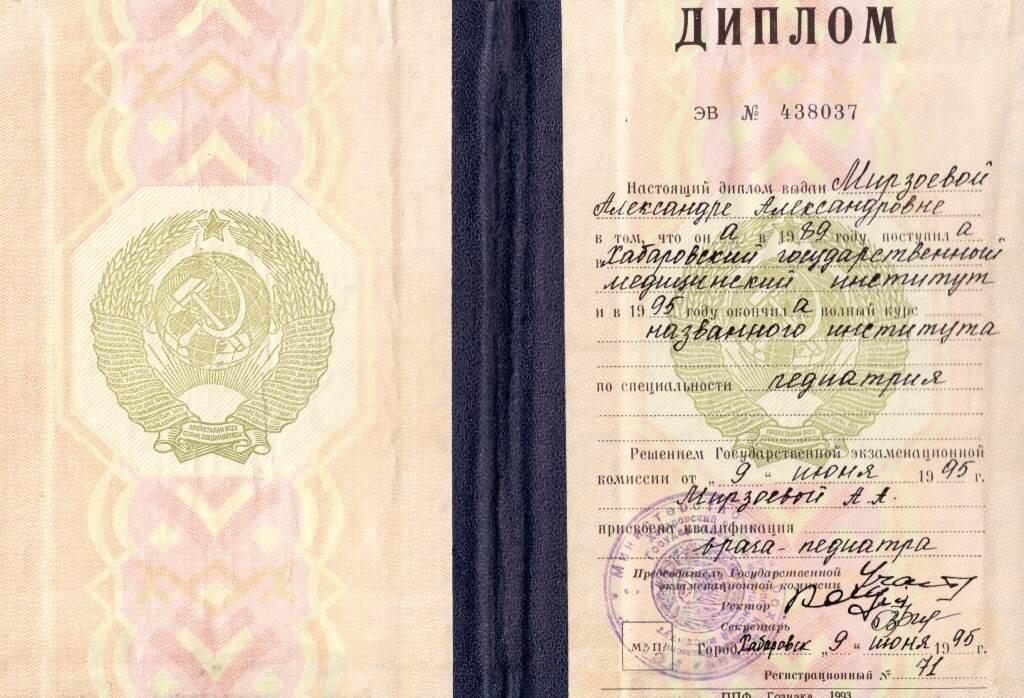 ПРОЛЕТАРИИ ВСЕХ
СТРАН, СОЕДИНЯЙТЕСЬ!
ДИПЛОМ
ЭВ № 438037
Настоящий диплом выдан Мирзоевой
Александре Александровне
в том, что он а в 1989 году поступил а
в Хабаровский государственный
медицинский институт
и в 1995 году окончил а полный курс
названного института
по специальности педиатрия
Решением Государственной экзаменационной
комиссии от „ 9 “ июня 1995 г.
Мирзоевой А.А.
присвоена квалификация
врача-педиатра
Председатель Государственной
экзаменационной комиссии
Ректор
Секретарь
М. П. Город Хабаровск „ 9 “ июня 1995 г.
Регистрационный № 71
ППФ Гознака 1993